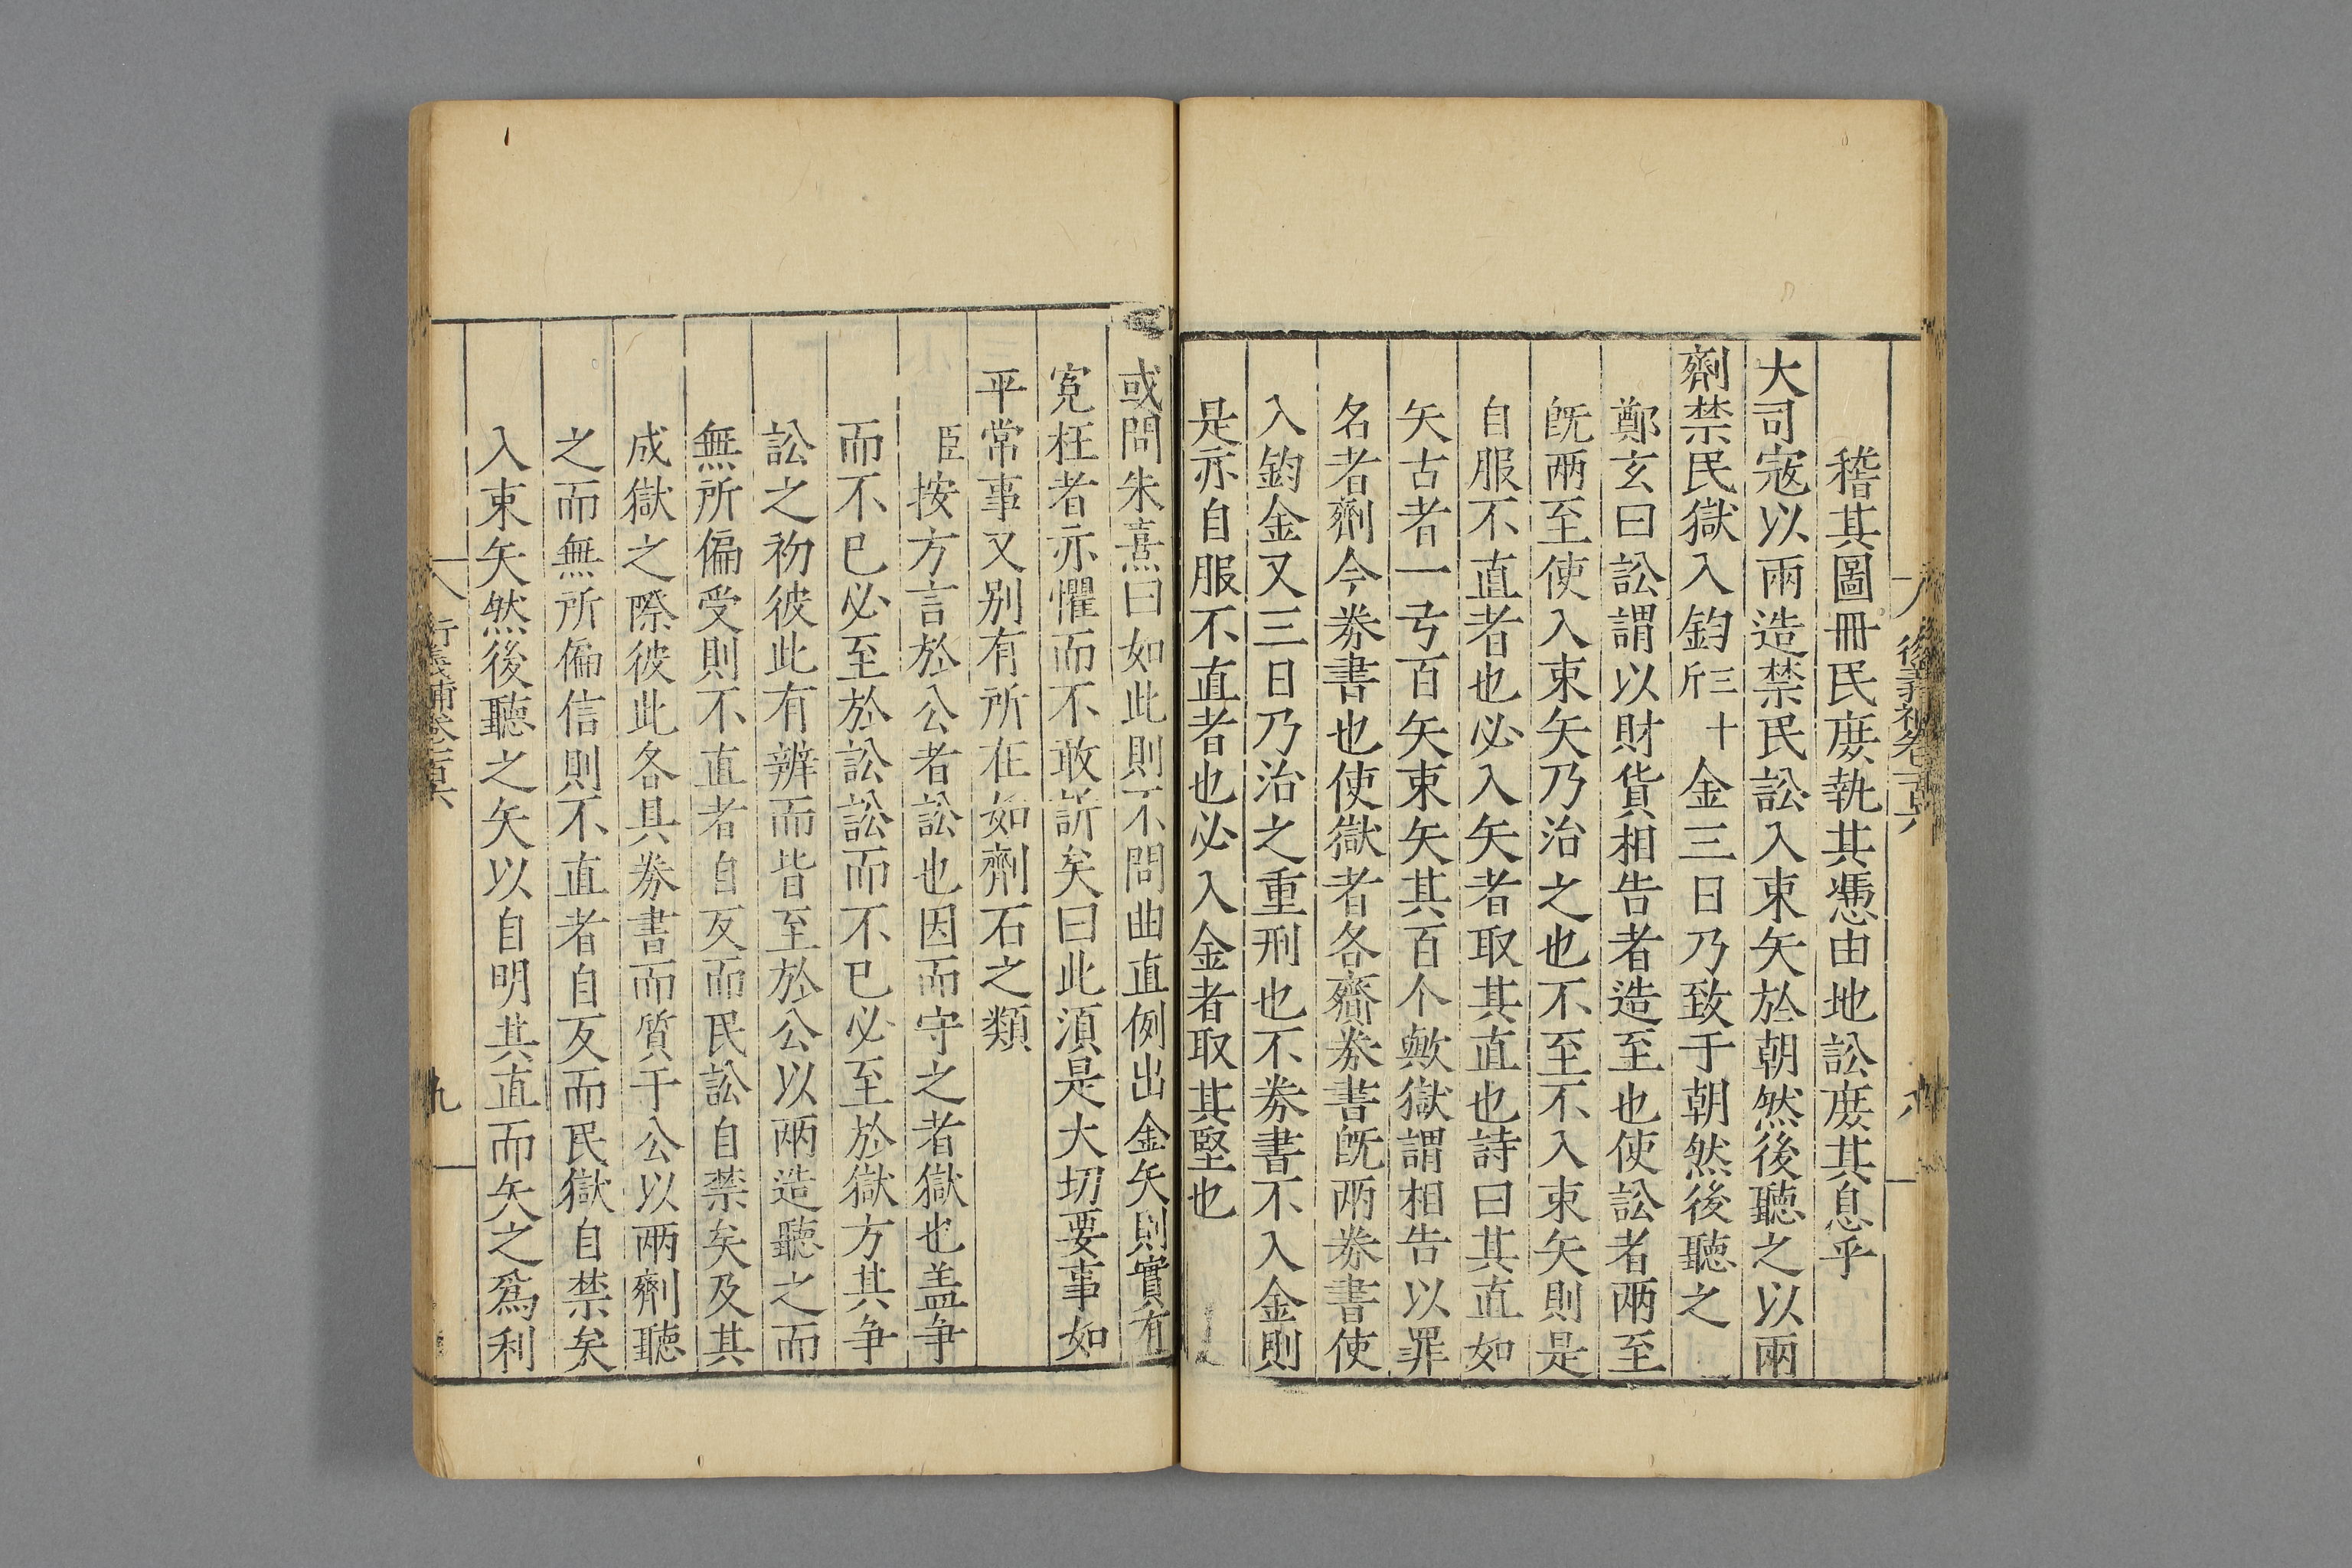 稽其圖冊民庶執其憑由地訟庶其息乎
大司寇以兩造禁民訟入束矢於朝然後聽之以兩
劑禁民獄入鈞三十斤金三日乃致于朝然後聽之
鄭玄曰訟謂以財貨相告者造至也使訟者兩至
旣兩至使入束矢乃治之也不至不入束矢則是
自服不直者也必入矢者取其直也詩曰其直如
矢古者一弓百矢束矢其百个歟獄謂相告以罪
名者劑今券書也使獄者各齎券書旣兩券書使
入鈞金又三日乃治之重刑也不券書不入金則
是亦自服不直者也必入金者取其堅也
或問朱熹曰如此則不問曲直例出金矢則實有
寃枉者亦懼而不敢訴矣曰此須是大切要事如
平常事又别有所在如劑石之類
臣按方言於公者訟也因而守之者獄也盖争
而不已必至於訟訟而不已必至於獄方其争
訟之初彼此有辨而皆至於公以兩造聽之而
無所偏受則不直者自反而民訟自禁矣及其
成獄之際彼此各具券書而質于公以兩劑聽
之而無所偏信則不直者自反而民獄自禁矣
入束矢然後聽之矢以自明其直而矢之爲利
九